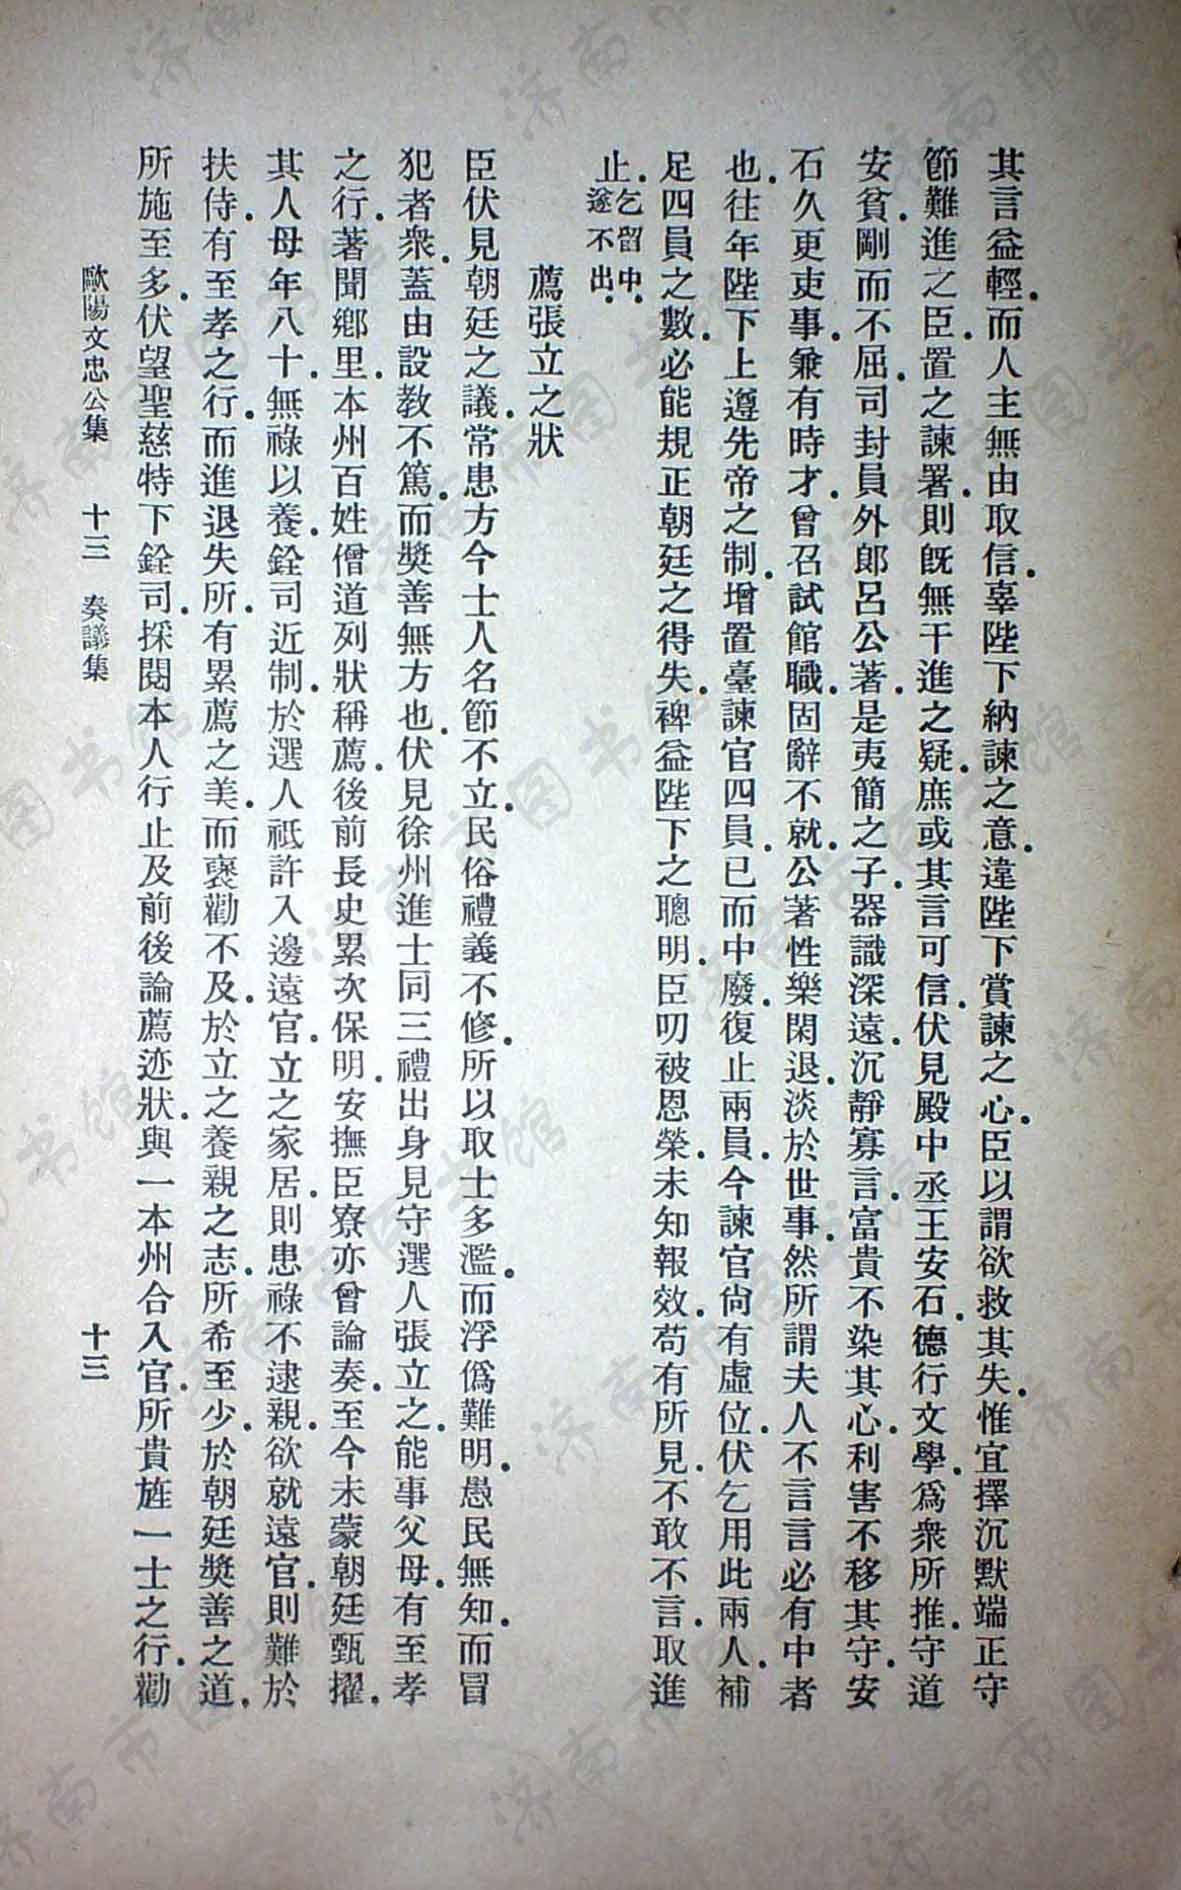 其言益輕．而人主無由取信．辜陛下納諫之意．違陛下賞諫之心．臣以謂欲救其失．惟宜擇沉默端正守
節難進之臣．置之諫署．則既無干進之疑．庶或其言可信．伏見殿中丞王安石．德行文學．爲衆所推．守道
安貧．剛而不屈．司封員外郎呂公著．是夷簡之子．器識深遠．沉靜寡言．富貴不染其心．利害不移其守．安
石久更吏事．兼有時才．曾召試館職．固辭不就．公著性樂閑退．淡於世事．然所謂夫人不言．言必有中者
也．往年陛下上遵先帝之制．增置臺諫官四員．已而中廢．復止兩員．今諫官尙有虛位．伏乞用此兩人．補
足四員之數．必能規正朝廷之得失．裨益陛下之聰明．臣叨被恩榮．未知報效．苟有所見．不敢不言．取進
止．乞留中．遂不出．
薦張立之狀
臣伏見朝廷之議．常患方今士人名節不立．民俗禮義不修．所以取士多濫．而浮僞難明．愚民無知．而冒
犯者衆．蓋由設教不篤．而獎善無方也．伏見徐州進士同三禮出身見守選人張立之．能事父母．有至孝
之行．著聞鄉里．本州百姓僧道列狀稱薦．後前長史累次保明．安撫臣寮亦曾論奏．至今未蒙朝廷甄擢．
其人母年八十．無祿以養．銓司近制．於選人祗許入邊遠官．立之家居．則患祿不逮親．欲就遠官．則難於
扶侍．有至孝之行．而進退失所．有累薦之美．而褒勸不及．於立之養親之志．所希至少．於朝廷獎善之道．
所施至多．伏望聖慈特下銓司．採閱本人行止及前後論薦迹狀．與一本州合入官．所貴旌一士之行．勸
歐陽文忠公集　十三　奏議集　十三